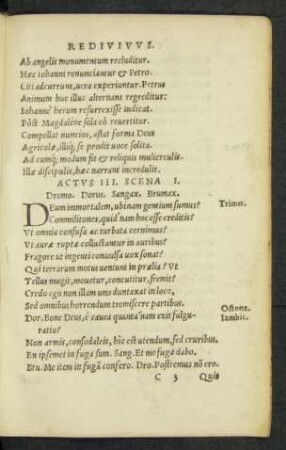 REDIVIVVS.
Ab angelis monumentum recluditur.
Haec Iohanni renunciantur & Petro.
Citi adcurrunt, uera experiuntur. Petrus
Animum huc illuc alternans regreditur:
Iohannes herum resurrexisse indicat.
Pòst Magdalene sola eò reuertitur.
Compellat nuncios, astat forma Deus
Agricolae, illiq́; se prodit uoce solita.
Ad eumq́; modum fit & reliquis mulierculis.
Illae discipulis, haec narrant incredulis.
ACTVS III. SCENA I.
Dromo. Dorus. Sangax. Brumax.
DEum immortalem, ubinam gentium sumus?
Trimet.
Commilitones, quid nam hoc esse creditis?
Vt omnia confusa ac turbata cernimus?
Vt aurae ruptae colluctantur in auribus?
Fragore ut ingenti conuulsa uox sonat?
Qui terrarum motus ueniunt in praelia? Vt
Tellus mugit, mouetur, concutitur, fremit?
Credo ego non illam uno duntaxat in loco,
Sed omnibus horrendum tremiscere partibus.
Octona.
Iambic.
Dor. Bone Deus, è cauea quanta nam exit fulgu-
ratio?
Non armis, consodaleis, hîc est utendum, sed cruribus.
En ipsemet in fuga sum. Sang. Et me fugae dabo.
Bru. Me item in fugā confero. Dro. Postremus nō ero.
C 3 Quis